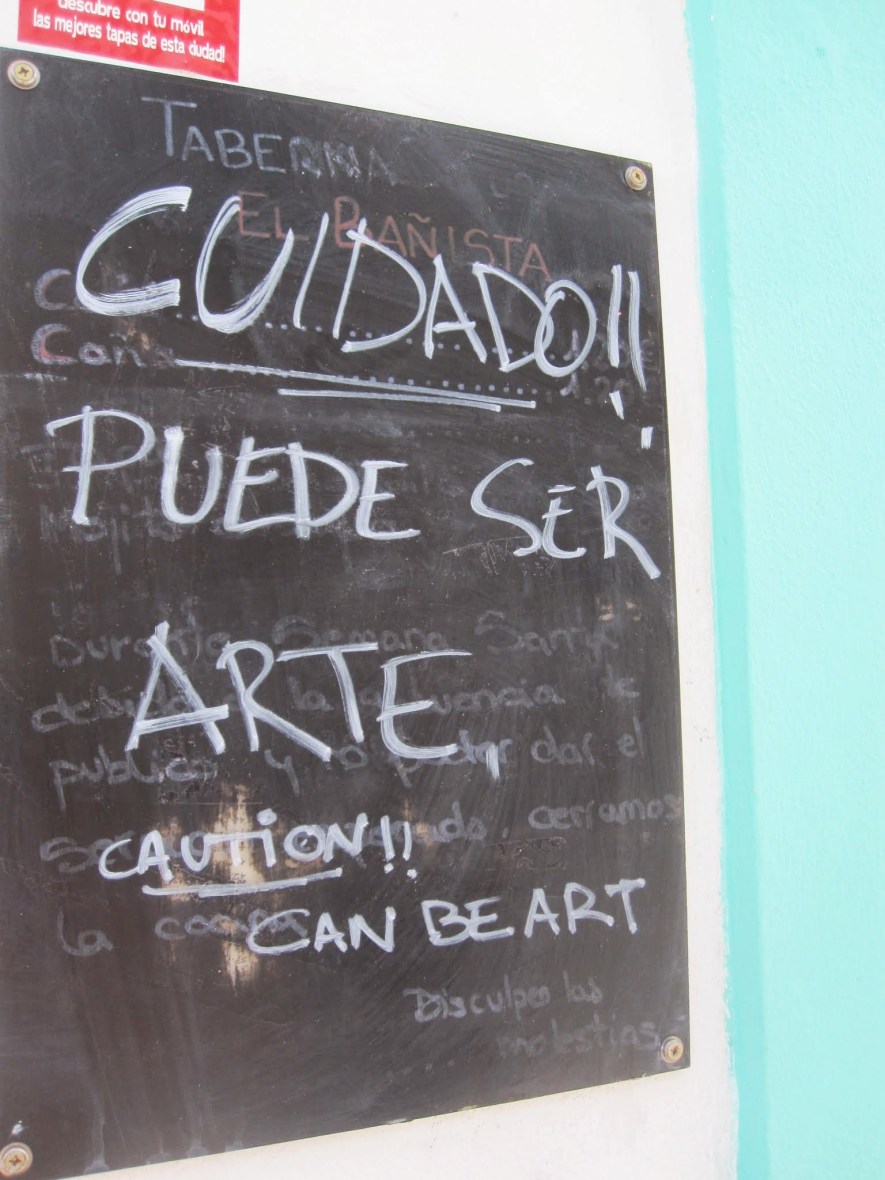 descubre con tu móvil
las mejores tapas de esta ciudad!
TABERNA
EL BAÑISTA
CUIDADO!!
PUEDE SER
ARTE
CAUTION!!
CAN BE ART
Durante Semana
la afluencia de
publico y no poder dar el
cerramos
la cocina
Disculpen las
molestias